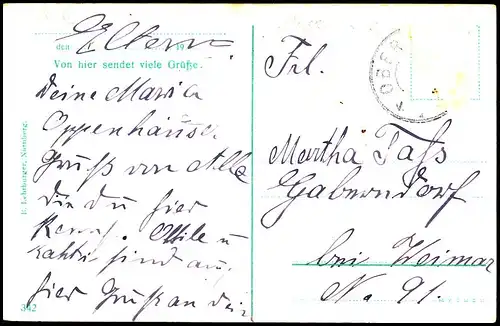 Eltern.
den 19
Von hier sendet viele Grüße.
Deine Maria
Oppenhäuser
Gruß von Alle
die du hier
kennst. Ottile u
Kathi sind auch
hier Gruß an dein
342
E. Lehrburger, Nürnberg.
OBER
Frl.
Martha Taſs
Gaberndorf
bei Weimar
N. 91.